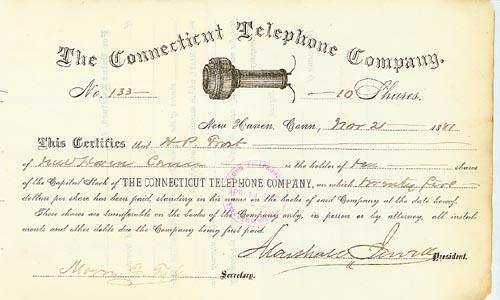 The Connecticut Telephone Company.
No. 133 — 10 Shares.
New Haven, Conn., Nov 21 1881
This Certifies that H. P. Frost
of New Haven Conn is the holder of Ten shares
of the Capital Stock of THE CONNECTICUT TELEPHONE COMPANY, on which twenty five
dollars per share has been paid, standing in his name in the books of said Company at the date hereof.
These shares are transferable on the books of the Company only, in person or by attorney, all instal-
ments and other debts due the Company being first paid.
Marshall Jewell President.
Morris F. Tyler Secretary.